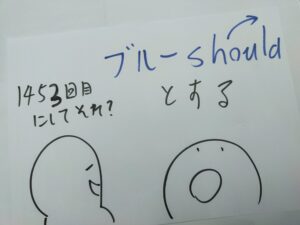 ブルーshould
とする
1453回目
にしてそれ?